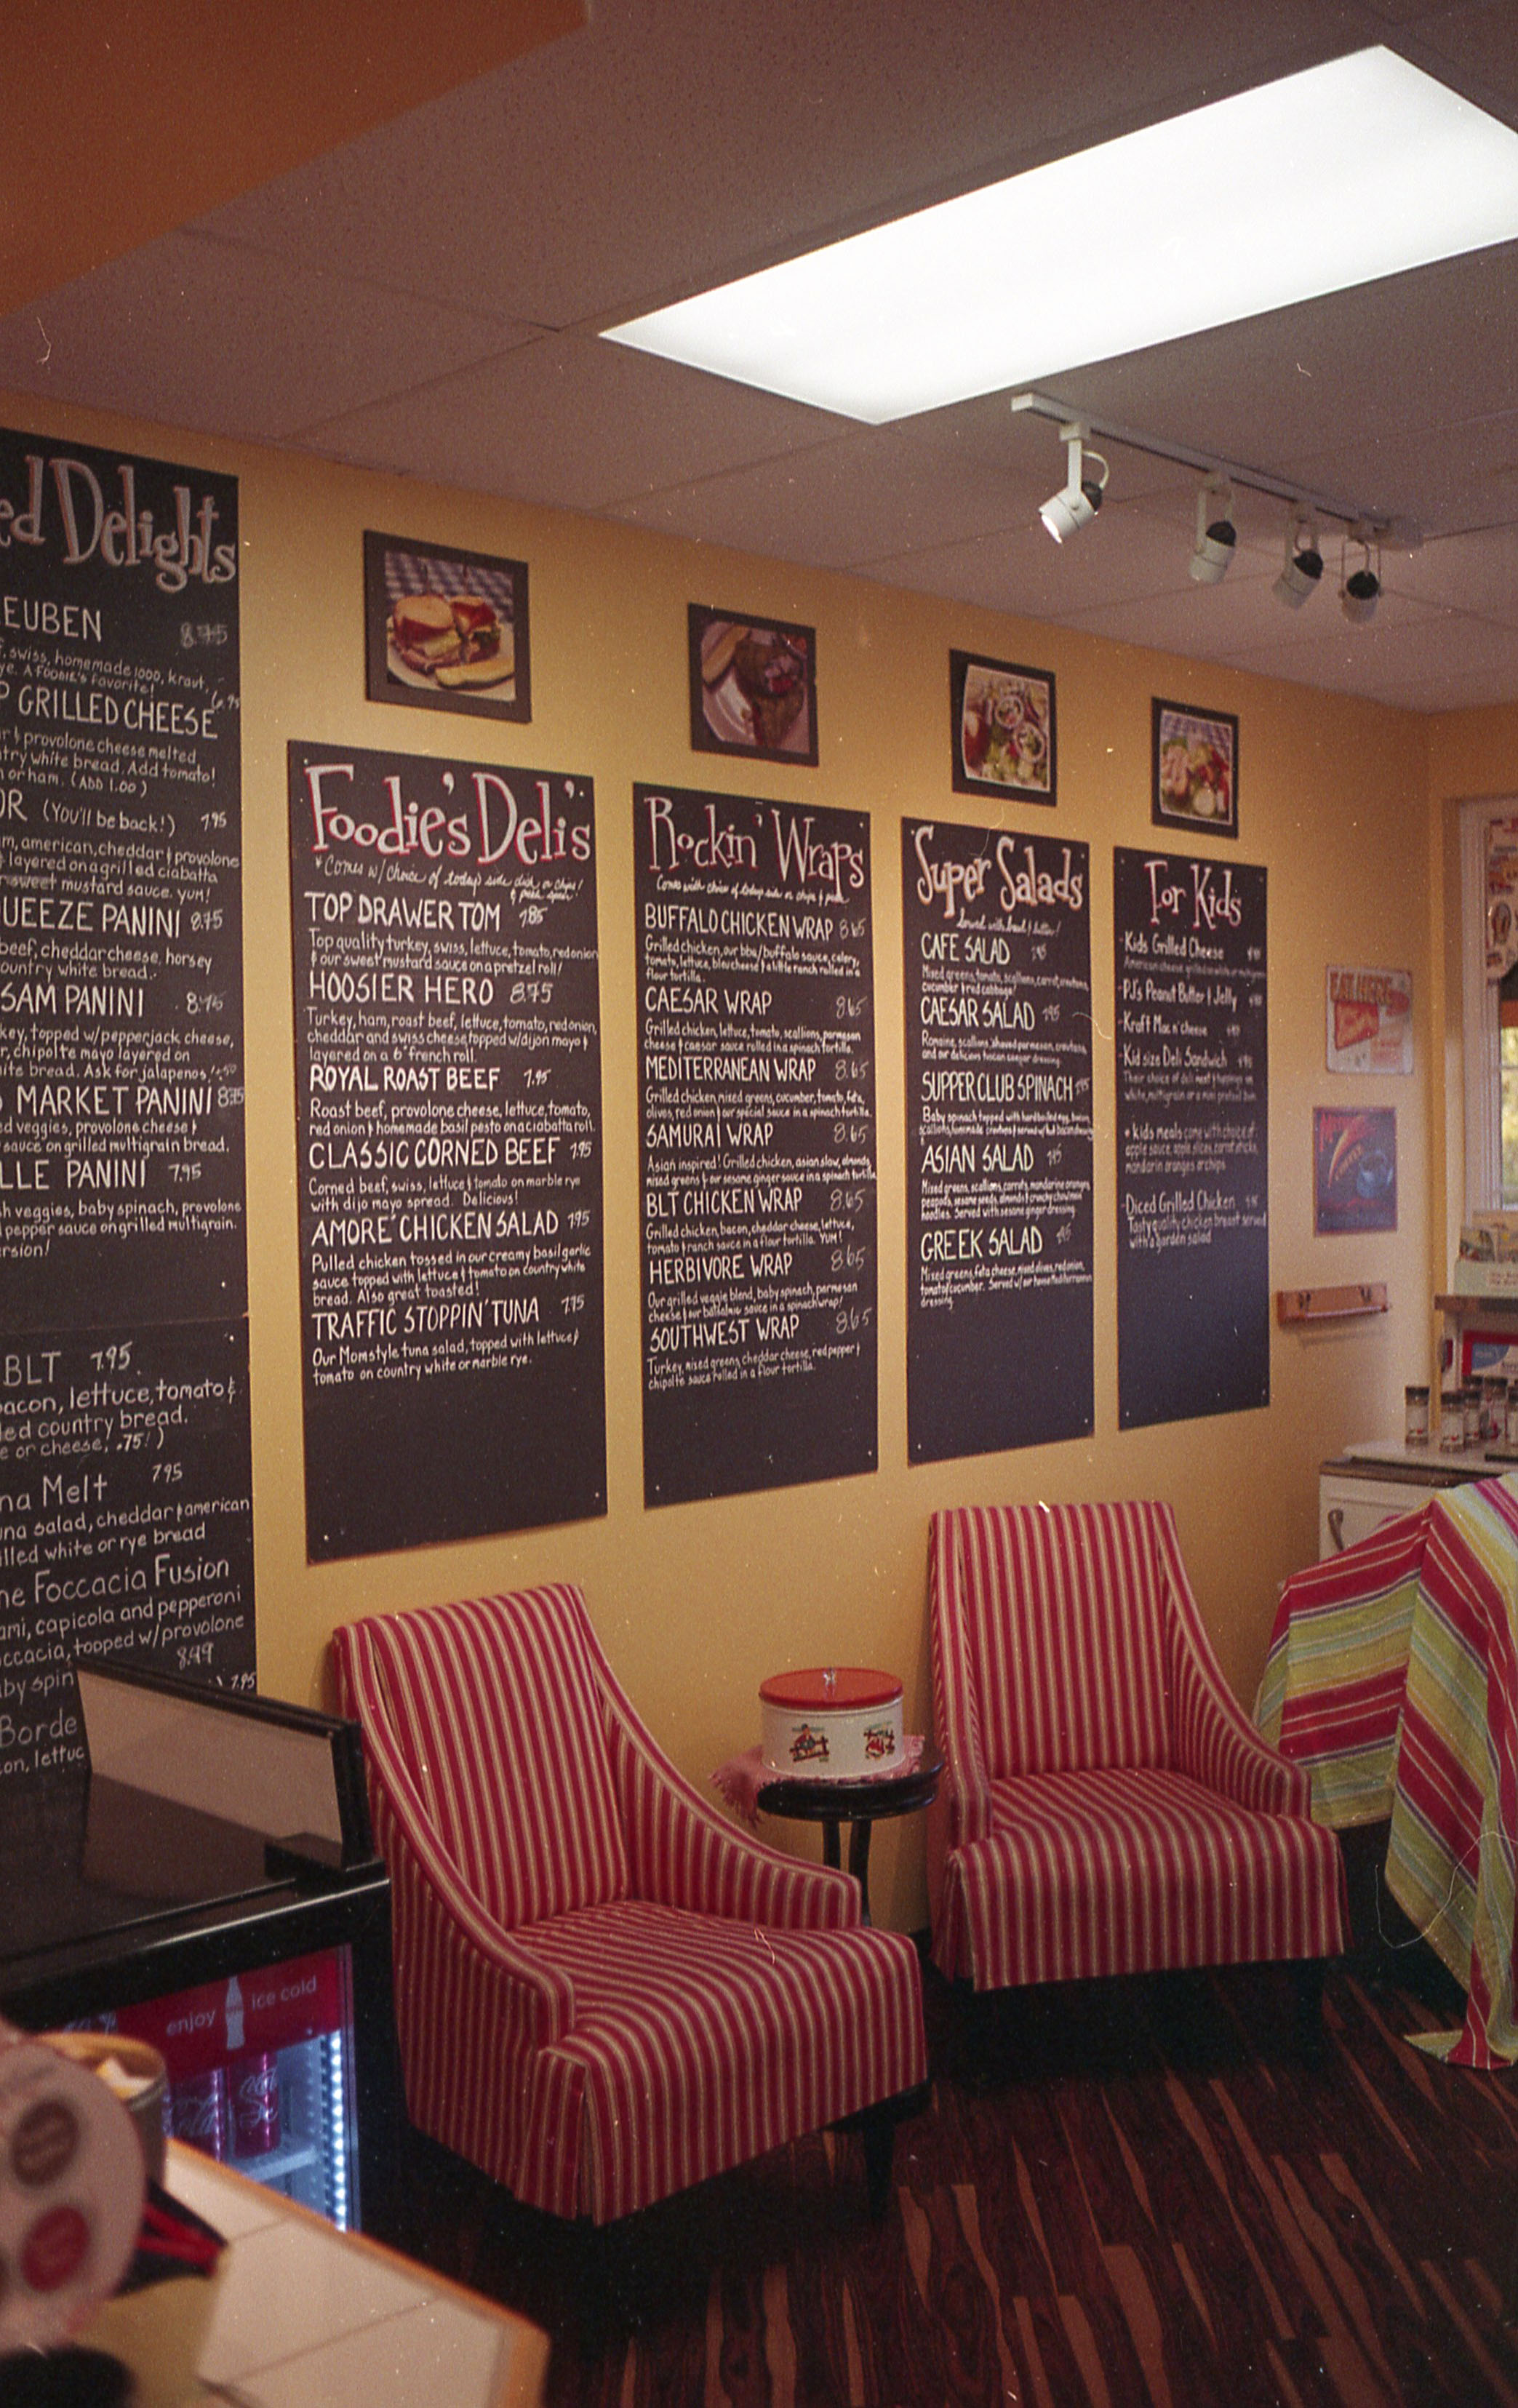 ed Delights
EUBEN 8.75
swiss, homemade 1000, kraut,
ye. A FOODIE'S favorite!
P GRILLED CHEESE 6.95
r & provolone cheese melted
try white bread. Add tomato!
or ham. (ADD 1.00)
OR (You'll be back!) 7.95
m, american, cheddar & provolone
layered on a grilled ciabatta
sweet mustard sauce. yum!
UEEZE PANINI 8.75
beef, cheddar cheese, horsey
ountry white bread.
SAM PANINI 8.75
key, topped w/ pepperjack cheese,
r, chipolte mayo layered on
ite bread. Ask for jalapenos!
MARKET PANINI 8.75
ed veggies, provolone cheese &
sauce on grilled multigrain bread.
LLE PANINI 7.95
h veggies, baby spinach, provolone
pepper sauce on grilled multigrain.
rsion!
BLT 7.95
acon, lettuce, tomato &
led country bread.
e or cheese, .75!)
na Melt 7.95
una salad, cheddar & american
illed white or rye bread
ne Foccacia Fusion
ami, capicola and pepperoni
ccacia, topped w/ provolone
by spin 8.49
7.95
Borde
on, lettuc
Foodie's Deli's
*Comes w/ choice of today's side dish or chips!
& pickle spear!
TOP DRAWER TOM 7.85
Top quality turkey, swiss, lettuce, tomato, red onion
& our sweet mustard sauce on a pretzel roll!
HOOSIER HERO 8.75
Turkey, ham, roast beef, lettuce, tomato, red onion,
cheddar and swiss cheese topped w/ dijon mayo &
layered on a 6" french roll.
ROYAL ROAST BEEF 7.95
Roast beef, provolone cheese, lettuce, tomato,
red onion & homemade basil pesto on a ciabatta roll.
CLASSIC CORNED BEEF 7.95
Corned beef, swiss, lettuce & tomato on marble rye
with dijo mayo spread. Delicious!
AMORE' CHICKEN SALAD 7.95
Pulled chicken tossed in our creamy basil garlic
sauce topped with lettuce & tomato on country white
bread. Also great toasted!
TRAFFIC STOPPIN' TUNA 7.75
Our Momstyle tuna salad, topped with lettuce &
tomato on country white or marble rye.
Rockin' Wraps
Comes with choice of todays side or chips & pickle
BUFFALO CHICKEN WRAP 8.65
Grilled chicken, our bbq/buffalo sauce, celery,
tomato, lettuce, bleu cheese & a little ranch rolled in a
flour tortilla.
CAESAR WRAP 8.65
Grilled chicken, lettuce, tomato, scallions, parmesan
cheese & caesar sauce rolled in a spinach tortilla.
MEDITERRANEAN WRAP 8.65
Grilled chicken, mixed greens, cucumber, tomato, feta,
olives, red onion & our special sauce in a spinach tortilla.
SAMURAI WRAP 8.65
Asian inspired! Grilled chicken, asian slaw, almonds,
mixed greens & our sesame ginger sauce in a spinach tortilla.
BLT CHICKEN WRAP 8.65
Grilled chicken, bacon, cheddar cheese, lettuce,
tomato & ranch sauce in a flour tortilla. YUM!
HERBIVORE WRAP 8.65
Our grilled veggie blend, baby spinach, parmesan
cheese & our balsalmic sauce in a spinach wrap!
SOUTHWEST WRAP 8.65
Turkey, mixed greens, cheddar cheese, red pepper &
chipolte sauce rolled in a flour tortilla.
Super Salads
Served with bread & butter!
CAFE SALAD
Mixed greens, tomato, scallions, carrot, croutons,
cucumber & red cabbage!
CAESAR SALAD 7.95
Romaine, scallions, shaved parmesan, croutons,
and our delicious tuscan caesar dressing.
SUPPER CLUB SPINACH
Baby spinach topped with hardboiled egg, bacon,
scallions, homemade croutons & served w/ hot bacon dressing
ASIAN SALAD
Mixed greens, scallions, carrots, mandarine oranges,
peapods, sesame seeds, almonds & crunchy chowmein
noodles. Served with sesame ginger dressing.
GREEK SALAD
Mixed greens, feta cheese, mixed olives, red onion,
tomato/cucumber. Served w/ our house Mediterranean
dressing.
For Kids
-Kids Grilled Cheese
American cheese grilled on white or multigrain
-PJ's Peanut Butter & Jelly
-Kraft Mac n' cheese
-Kid size Deli Sandwich
Their choice of deli meat & toppings on
white, multigrain or a mini pretzel bun.
* kids meals come with choice of:
apple sauce, apple slices, carrot sticks,
mandarin oranges or chips
-Diced Grilled Chicken
Tasty quality chicken breast served
with a garden salad
EAT HERE
COFFEE
enjoy ice cold
Coca-Cola